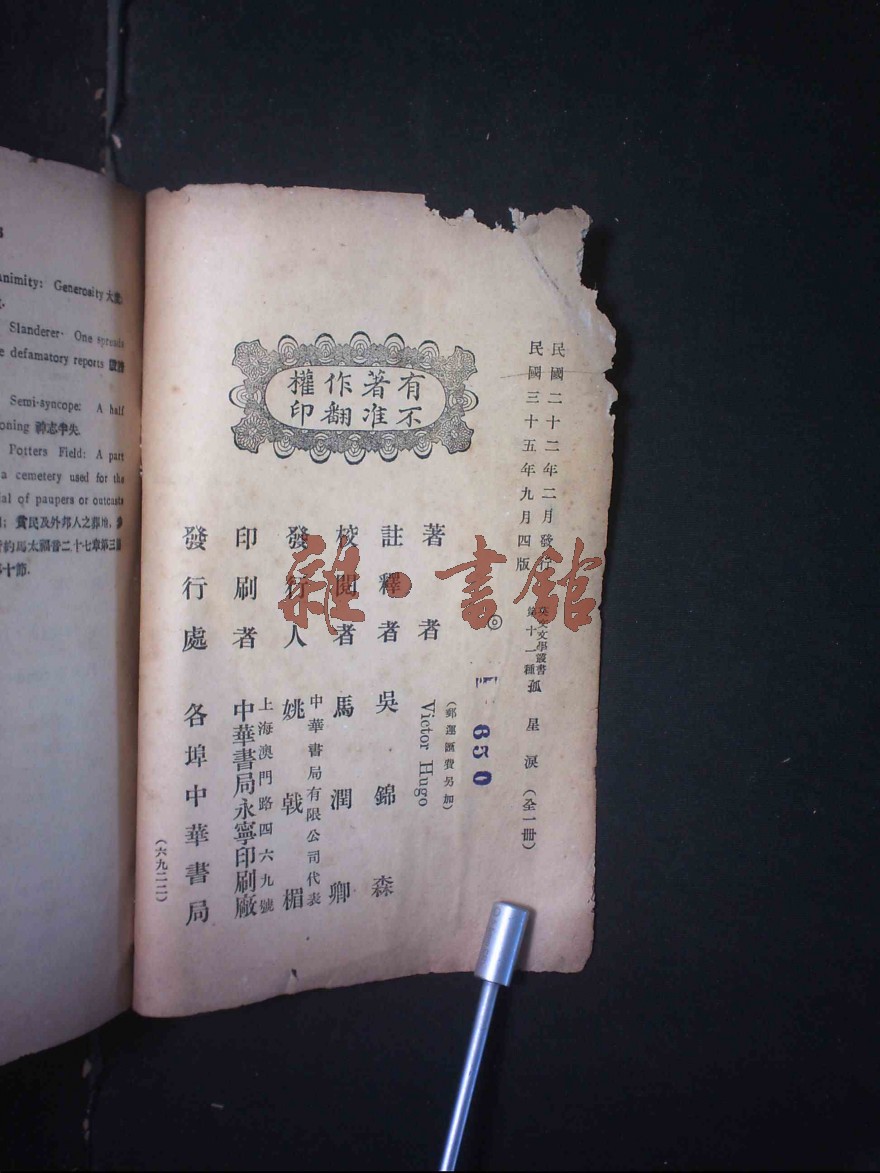 nimity: Generosity 大
Slanderer- One spreads
e defamatory reports
Semi-syncope: A half
oning 神志半失
Potters Field: A part
a cemetery used for the
al of paupers or outcasts
貧民及外邦人之葬地,
約馬太福音二十七章第三
十節.
民國二十二年二月發行
民國三十五年九月四版
英文文學叢書
第十一種
孤星淚(全一冊)
◎
650
(郵運匯費另加)
有著作權
不准翻印
著者 Victor Hugo
註釋者 吳錦森
校閱者 馬潤卿
發行人 姚戟楣
中華書局有限公司代表
印刷者 中華書局永寧印刷廠
上海澳門路四六九號
發行處 各埠中華書局
(六九二二)
雜·書館